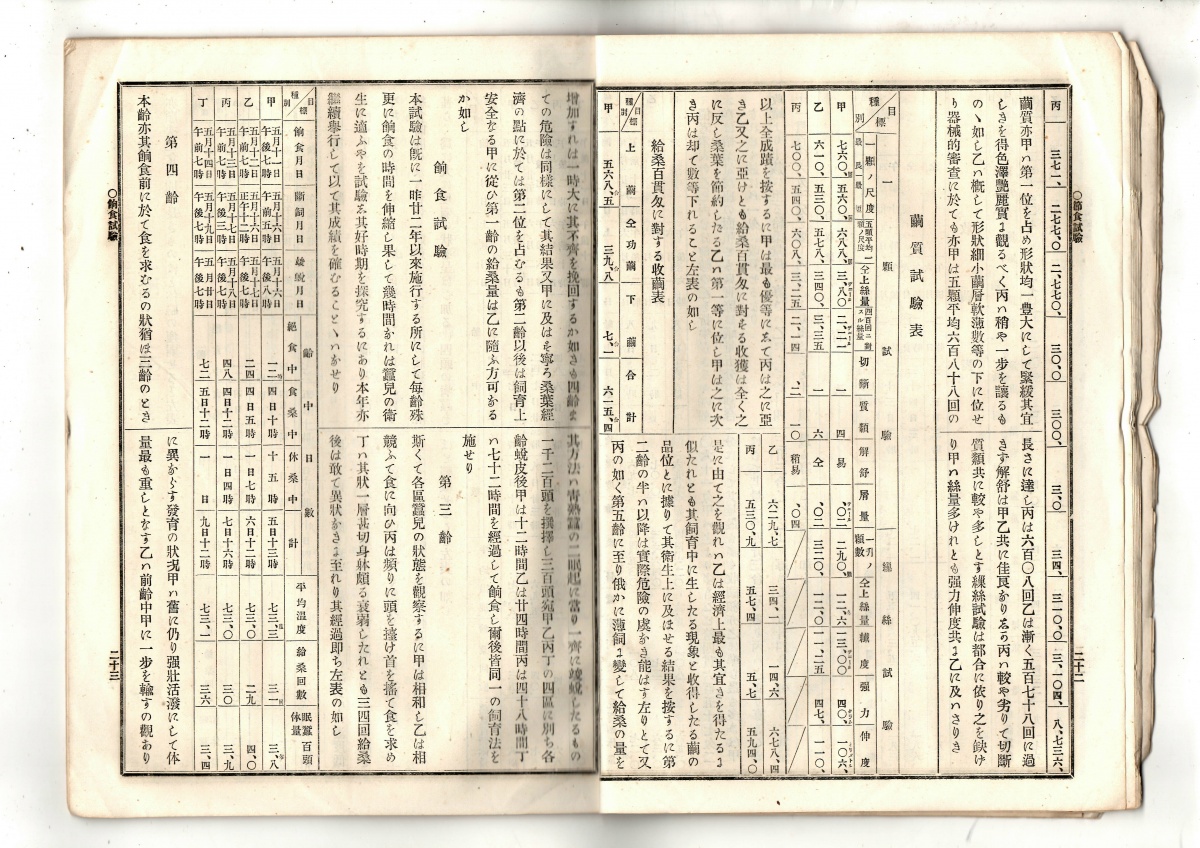 ○節食試驗
二十二
丙 三七一、 二七七、〇 二、七七〇、 三〇、〇 三〇〇、 三、〇 三四、 三一〇、〇 三、一〇四、 八、七三六、
繭質亦甲ハ第一位を占め形狀均一豊大にして緊緩其宜
しきを得色澤艶麗實よ觀るべく丙ハ稍や一步を讓るも
のゝ如し乙ハ概して形狀細小繭層軟薄數等の下に位せ
り器械的審查に於ても亦甲は五顆平均六百八十八回の
長さに達し丙は六百〇八回乙は漸く五百七十八回に過
きず解舒は甲乙共に佳良かり
質類共に較や多しとす繰絲試驗は都合に依り之を缺け
り甲ハ絲量多けれとも强力伸度共よ乙に及ハさりき
繭質試驗表
種別 目標
一顆試驗
繰絲試驗
一顆ノ尺度
最長 最短
五顆平均一顆ノ尺度
仝上絲量
切斷
質類
解舒
層量
一升ノ顆數
仝上絲量
纎度
强力
伸度
甲 七六〇、 五六〇、 六八八、 三、八〇 二、二一 一 四 易 〇二 二九〇、 一二、六 一三、〇〇 四〇、 一〇六、
乙 六一〇、 五三〇、 五七八、 三四〇、 三、三五 一 六 仝 〇二 三二〇、 一二、〇 一一、二五 四七、 一一〇、
丙 七〇〇、 五四〇、 六〇八、 三、二五 二、一四 二 一〇 稍易 〇四
以上全成蹟を按するに甲は最も優等にゑて丙は之に亞
き乙又之に亞けとも給桑百貫匁に對をる收獲は全く之
に反し桑葉を節約したる乙ハ第一等に位し甲は之に次
き丙は却て數等下れること左表の如し
給桑百貫匁に對する收繭表
種別 目標 上繭 仝功繭 下繭 合計
甲 五六八、五 三九、八 七、一 六一五、四
乙 六二九、七 三四、一 一四、六 六七八、四
丙 五三〇、九 五七、四 五、七 五九四、〇
是に由て之を觀れハ乙は經濟上最も其宜きを得たるよ
似たれとも其飼育中に生したる現象と收得したる繭の
品位とに據りて其衛生上に及ほせる結果を按するに第
二齡の半ハ以降は實際危險の虞かき能はす左りとて又
丙の如く第五齡に至り俄かに薄飼よ變して給桑の量を
增加すれは一時大に其不齊を挽回するか如きも四齡ま
ての危險は同樣にして其結果又甲に及はを寧ろ桑葉經
濟の點に於ては第二位を占むるも第二齡以後は飼育上
安全なる甲に從ひ第一齡の給桑量は乙に隨ふ方可かる
か如し
餉食試驗
本試驗は旣に一昨廿二年以來施行する所にして每齡殊
更に餉食の時間を伸縮し果して幾時間かれは蠶兒の衛
生に適ふやを試驗ゑ其好時期を探究するにあり本年亦
繼續擧行して以て其成績を確むることゝハかせり
其方法ハ靑熟蠶の二眠起に當り一齊に
一千二百頭を撰擇し三百頭宛甲乙丙丁の四區に別ち各
齡蛻皮後甲は十二時間乙は廿四時間丙は四十八時間丁
ハ七十二時間を經過して餉食し爾後皆同一の飼育法を
施せり
第三齡
斯くて各區蠶兒の狀態を觀察するに甲は相和し乙は相
競ふて食に向ひ丙は頻りに頭を擡け首を搖て食を求め
丁ハ其狀一層甚切身躰頗る衰弱したれとも三四回給桑
後は敢て異狀かきよ至れり其經過即ち左表の如し
種別 目標 餉食月日 斷飼月日 蛻月日
齡中日數 絕食中 食桑中 休桑中 計
平均溫度 給桑回數 眠蠶百頭体量
甲 五月十一日午後七時 五月十六日午前五時 五月十六日午後八時 一二、 四日十時 十五時 五日十三時 七三、三 三一 三、八
乙 五月十二日午前七時 五月十六日正午十二時 五月十七日午後七時 二四 四日五時 一日七時 六日十二時 七三、〇 二九 四、〇
丙 五月十三日午前七時 五月十七日午後三時 五月十八日午後七時 四八 四日十二時 一日四時 七日十六時 七三、〇 三〇 三、九
丁 五月十四日午前七時 五月十九日午後七時 五月廿日午後七時 七二 五日十二時 一日 九日十二時 七三、一 三六 三、四
第四齡
本齡亦其餉食前に於て食を求むるの狀猶ほ三齡のとき
に異からす發育の狀况甲ハ舊に仍り强壯活潑にして体
量最も重しとなす乙ハ前齡中甲に一步を輸すの觀あり
○餉食試驗
二十三